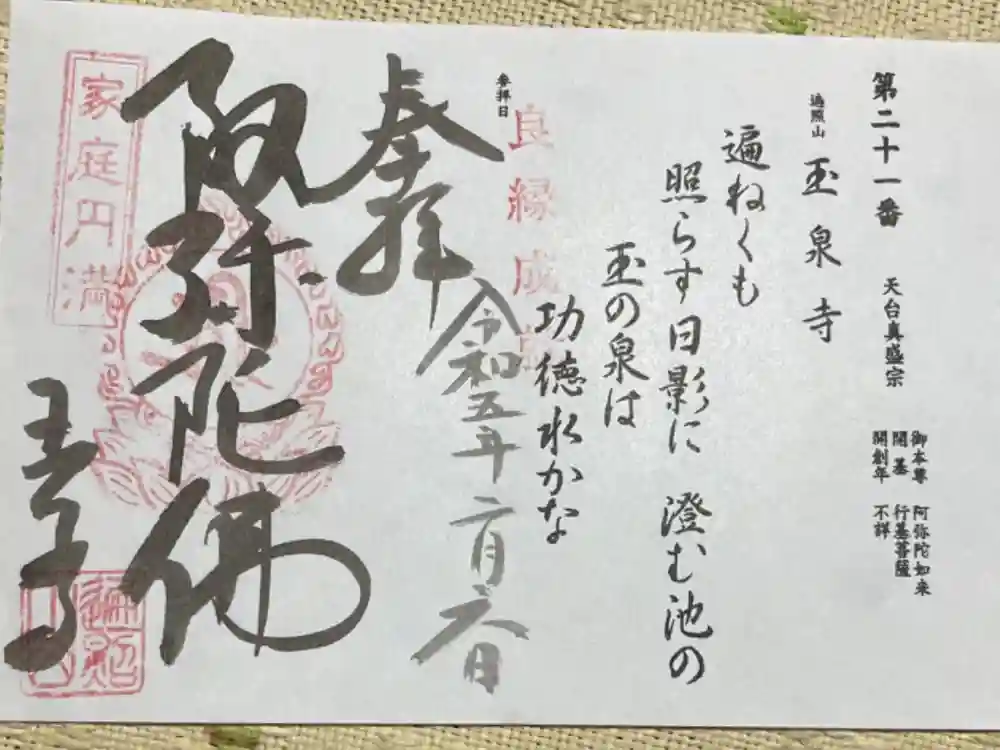 第二十一番 天台真盛宗
御本尊 阿弥陀如来
開基 行基菩薩
開創年 不詳
遍照山 玉泉寺
遍ねくも
照らす日影に 澄む池の
玉の泉は
功徳水かな
参拝日
良縁成就
令和五年二月六日
奉拝
阿弥陀佛
家庭円満
玉泉寺